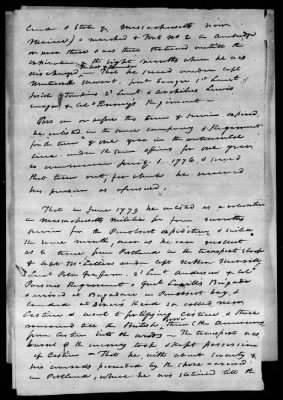 and State of Massachusetts now
Maine) & marched to Fort No 2 in Cambridge
or near there & was there stationed untill the
expiration of the eight months when he was
discharged. That he served under Capt
Wentworth Stuart, first Lieut
Josiah Jenkins 2d Lieut &
& Col Phinneys Regiment.
That on or before this term of service expired,
he enlisted in the same company & Regiment
for the term of one year in the continental
line under the same officers for one year
to commence Jany 1. 1776, & served
that time out, for which he received
his pension as aforesaid.
That in June 1779 he enlisted as a volunteer
in Massachusetts Militia for four months
service for the Penobscot expedition & sailed
the same month, soon as he can
as to time from Portland in the transport sloop
of Capt under Capt Nathan Merrill
Lieut Peter Graffam. 2d Lieut Anderson & Col
Regiment & Genl Lovells Brigade
& arrived at Bagaduce in Penobscot bay &
landed at head so called near
Castine & went to fortifying Castine & there
remained till the British drove them (the Americans
from Castine into the woods - The transport was
burned & the enemy took & kept possession
of Castine - That he, with about twenty of
his comrads proceeded by the shore & arrived
in Portland, where he was stationed till the